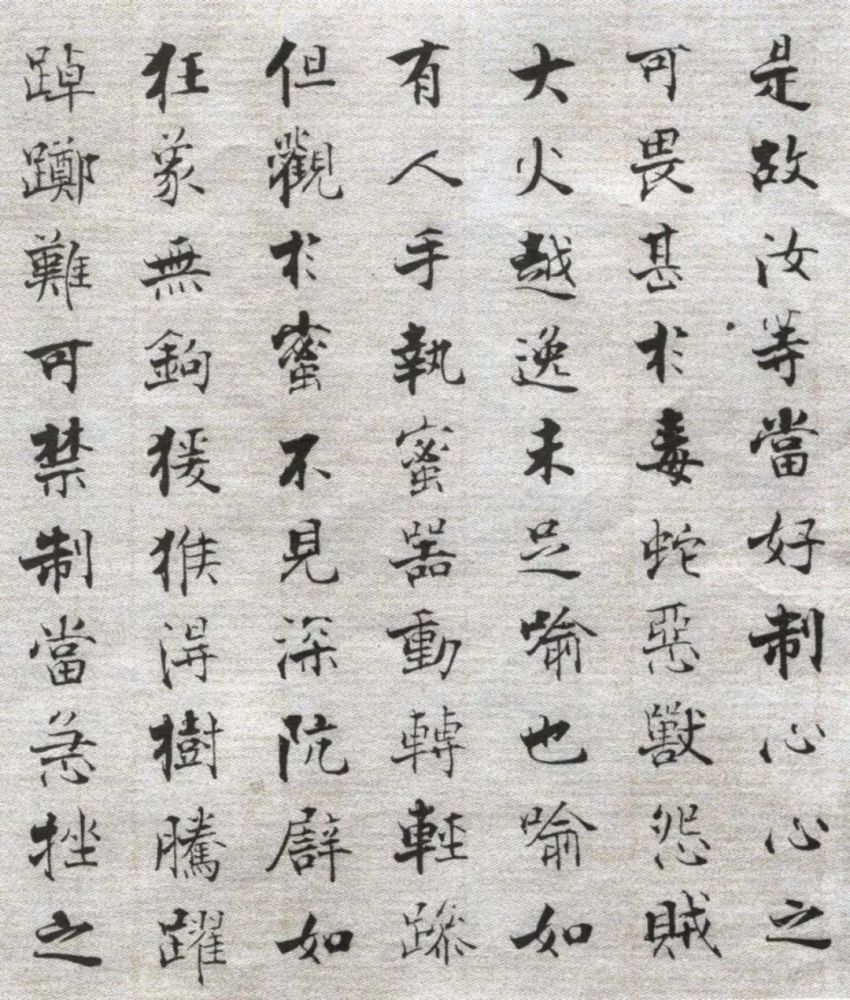 是故汝等當好制心心之
可畏甚於毒蛇惡獸怨賊
大火越逸未足喻也喻如
有人手執蜜器動轉輕躁
但觀於蜜不見深阬譬如
狂象無鉤猨猴得樹騰躍
踔躑難可禁制當急挫之